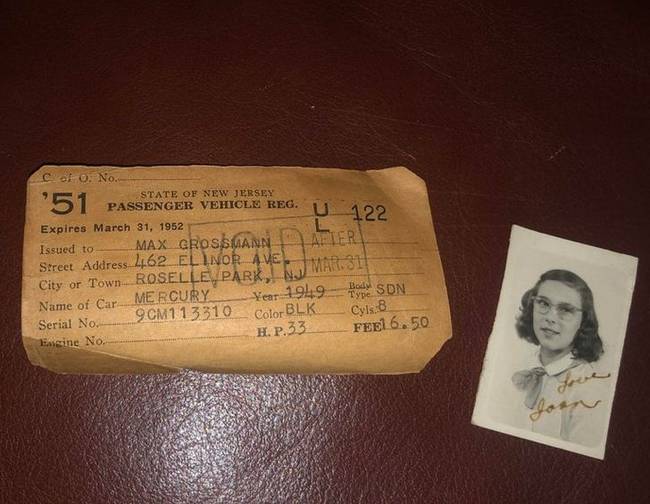 C. of O. No.
'51 STATE OF NEW JERSEY
PASSENGER VEHICLE REG. U L 122
Expires March 31, 1952
VOID AFTER MAR.31
Issued to MAX GROSSMANN
Street Address 462 ELINOR AVE.
City or Town ROSELLE PARK, NJ
Name of Car MERCURY Year 1949 Body Type SDN
Serial No. 9CM113310 Color BLK Cyls. 8
Engine No. H.P. 33 FEE 16.50
Love
Joan